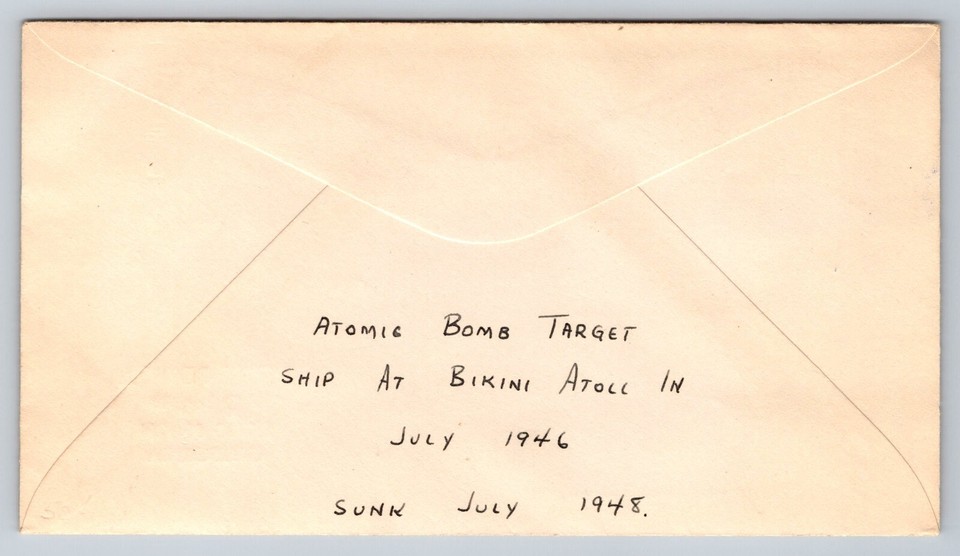 ATOMIC BOMB TARGET
SHIP AT BIKINI ATOLL IN
JULY 1946
SUNK JULY 1948.